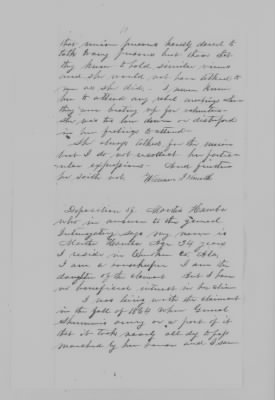 that union persons hardly dared to
talk to any persons but those that
they knew to hold similar views
and she would not have talked to
me as she did. I never knew
her to attend any rebel meetings when
they were beating up for volunteers
She was too low down or distressed
in her feelings to attend
She always talked for the union
but I do not recollect her partic-
ular expressions And further
he saith not
Deposition of Martha
who in answer to the General
Interrogatory says my name is
Martha Age 34 years
I reside in Co, Ala,
I am a housekeeper I am the
daughter of the claimant but I have
no beneficial interest in the claim
I was living with the claimant
in the fall of 1864 when General
Shermans army or a part of it
that it took nearly all day to pass
marched by her house and I saw